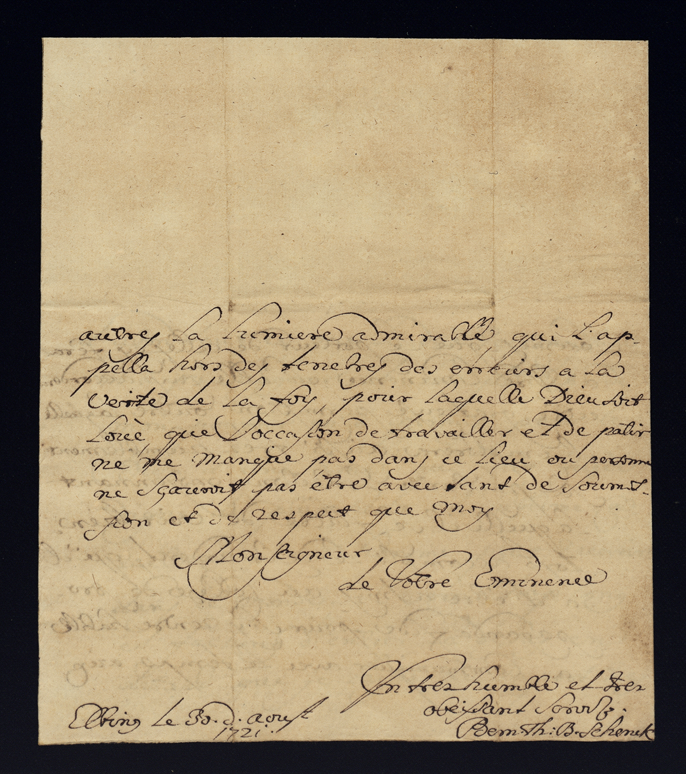 autres la lumiere admirable qui l'ap-
pella hors des tenebres des erreurs a la
verite de la foy, pour laquelle Dieu soit
louè que l'occasion de travailler et de patir
ne me manque pas dans ce lieu ou personne
ne sçauroit pas être avec tant de soumis-
sion et de respect que moy
Monseigneur
de Votre Eminence
Un tres humble et tres
obeissant servitr.
Elbing le 30. d. aoust
1721.
Th: B. Schenck